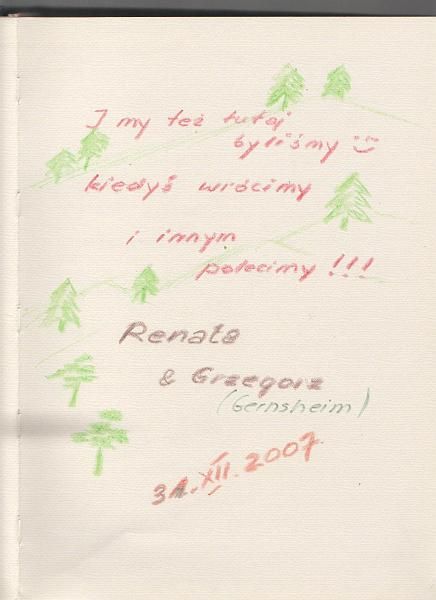 I my też tutaj
byliśmy
kiedyś wrócimy
i innym
polecimy !!!
Renata
& Grzegorz
(Gernsheim)
31.XII.2007